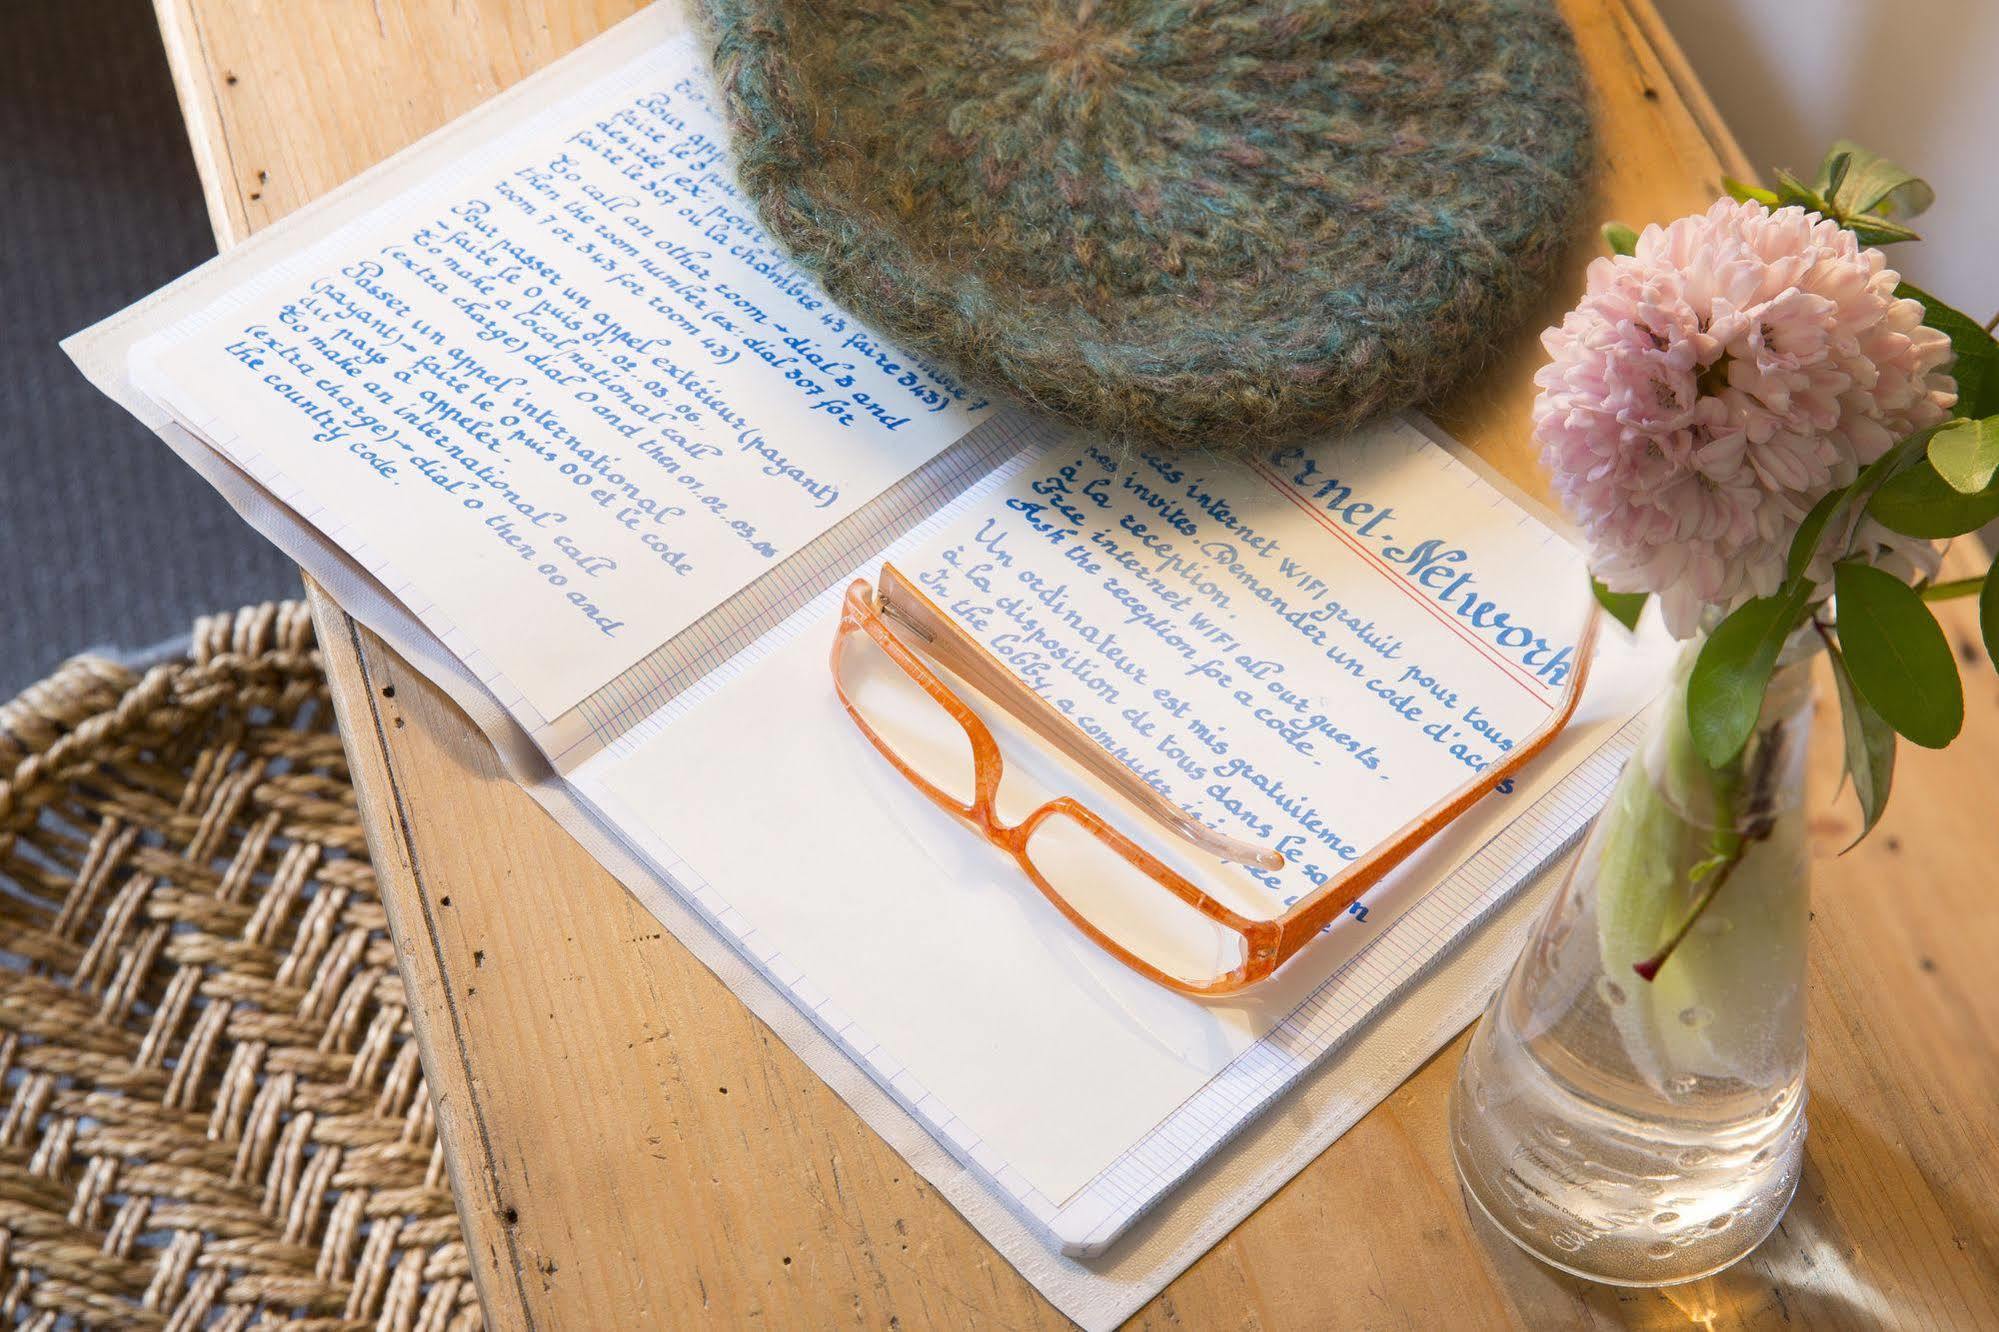 Pour app
faire le 3 puis
désirée (ex: pour
faire le 307 ou la chambre 43 faire 343)
To call an other room → dial 3 and
then the room number (ex: dial 307 for
room 7 or 343 for room 43)
Pour passer un appel extérieur (payant)
– faire le 0 puis 01. 02. 03. 06.
To make a local/national call
(extra charge) dial 0 and then 01. 02. 03. 06
Passer un appel international
(payant) – faire le 0 puis 00 et le code
du pays à appeler.
To make an international call
(extra charge) – dial 0 then 00 and
the country code.
ernet-Network
ès internet WIFI gratuit pour tous
nos invités. Demander un code d'accès
à la réception.
Free internet WIFI all our guests.
Ask the reception for a code.
Un ordinateur est mis gratuiteme
à la disposition de tous dans le sa
In the lobby, a computer is